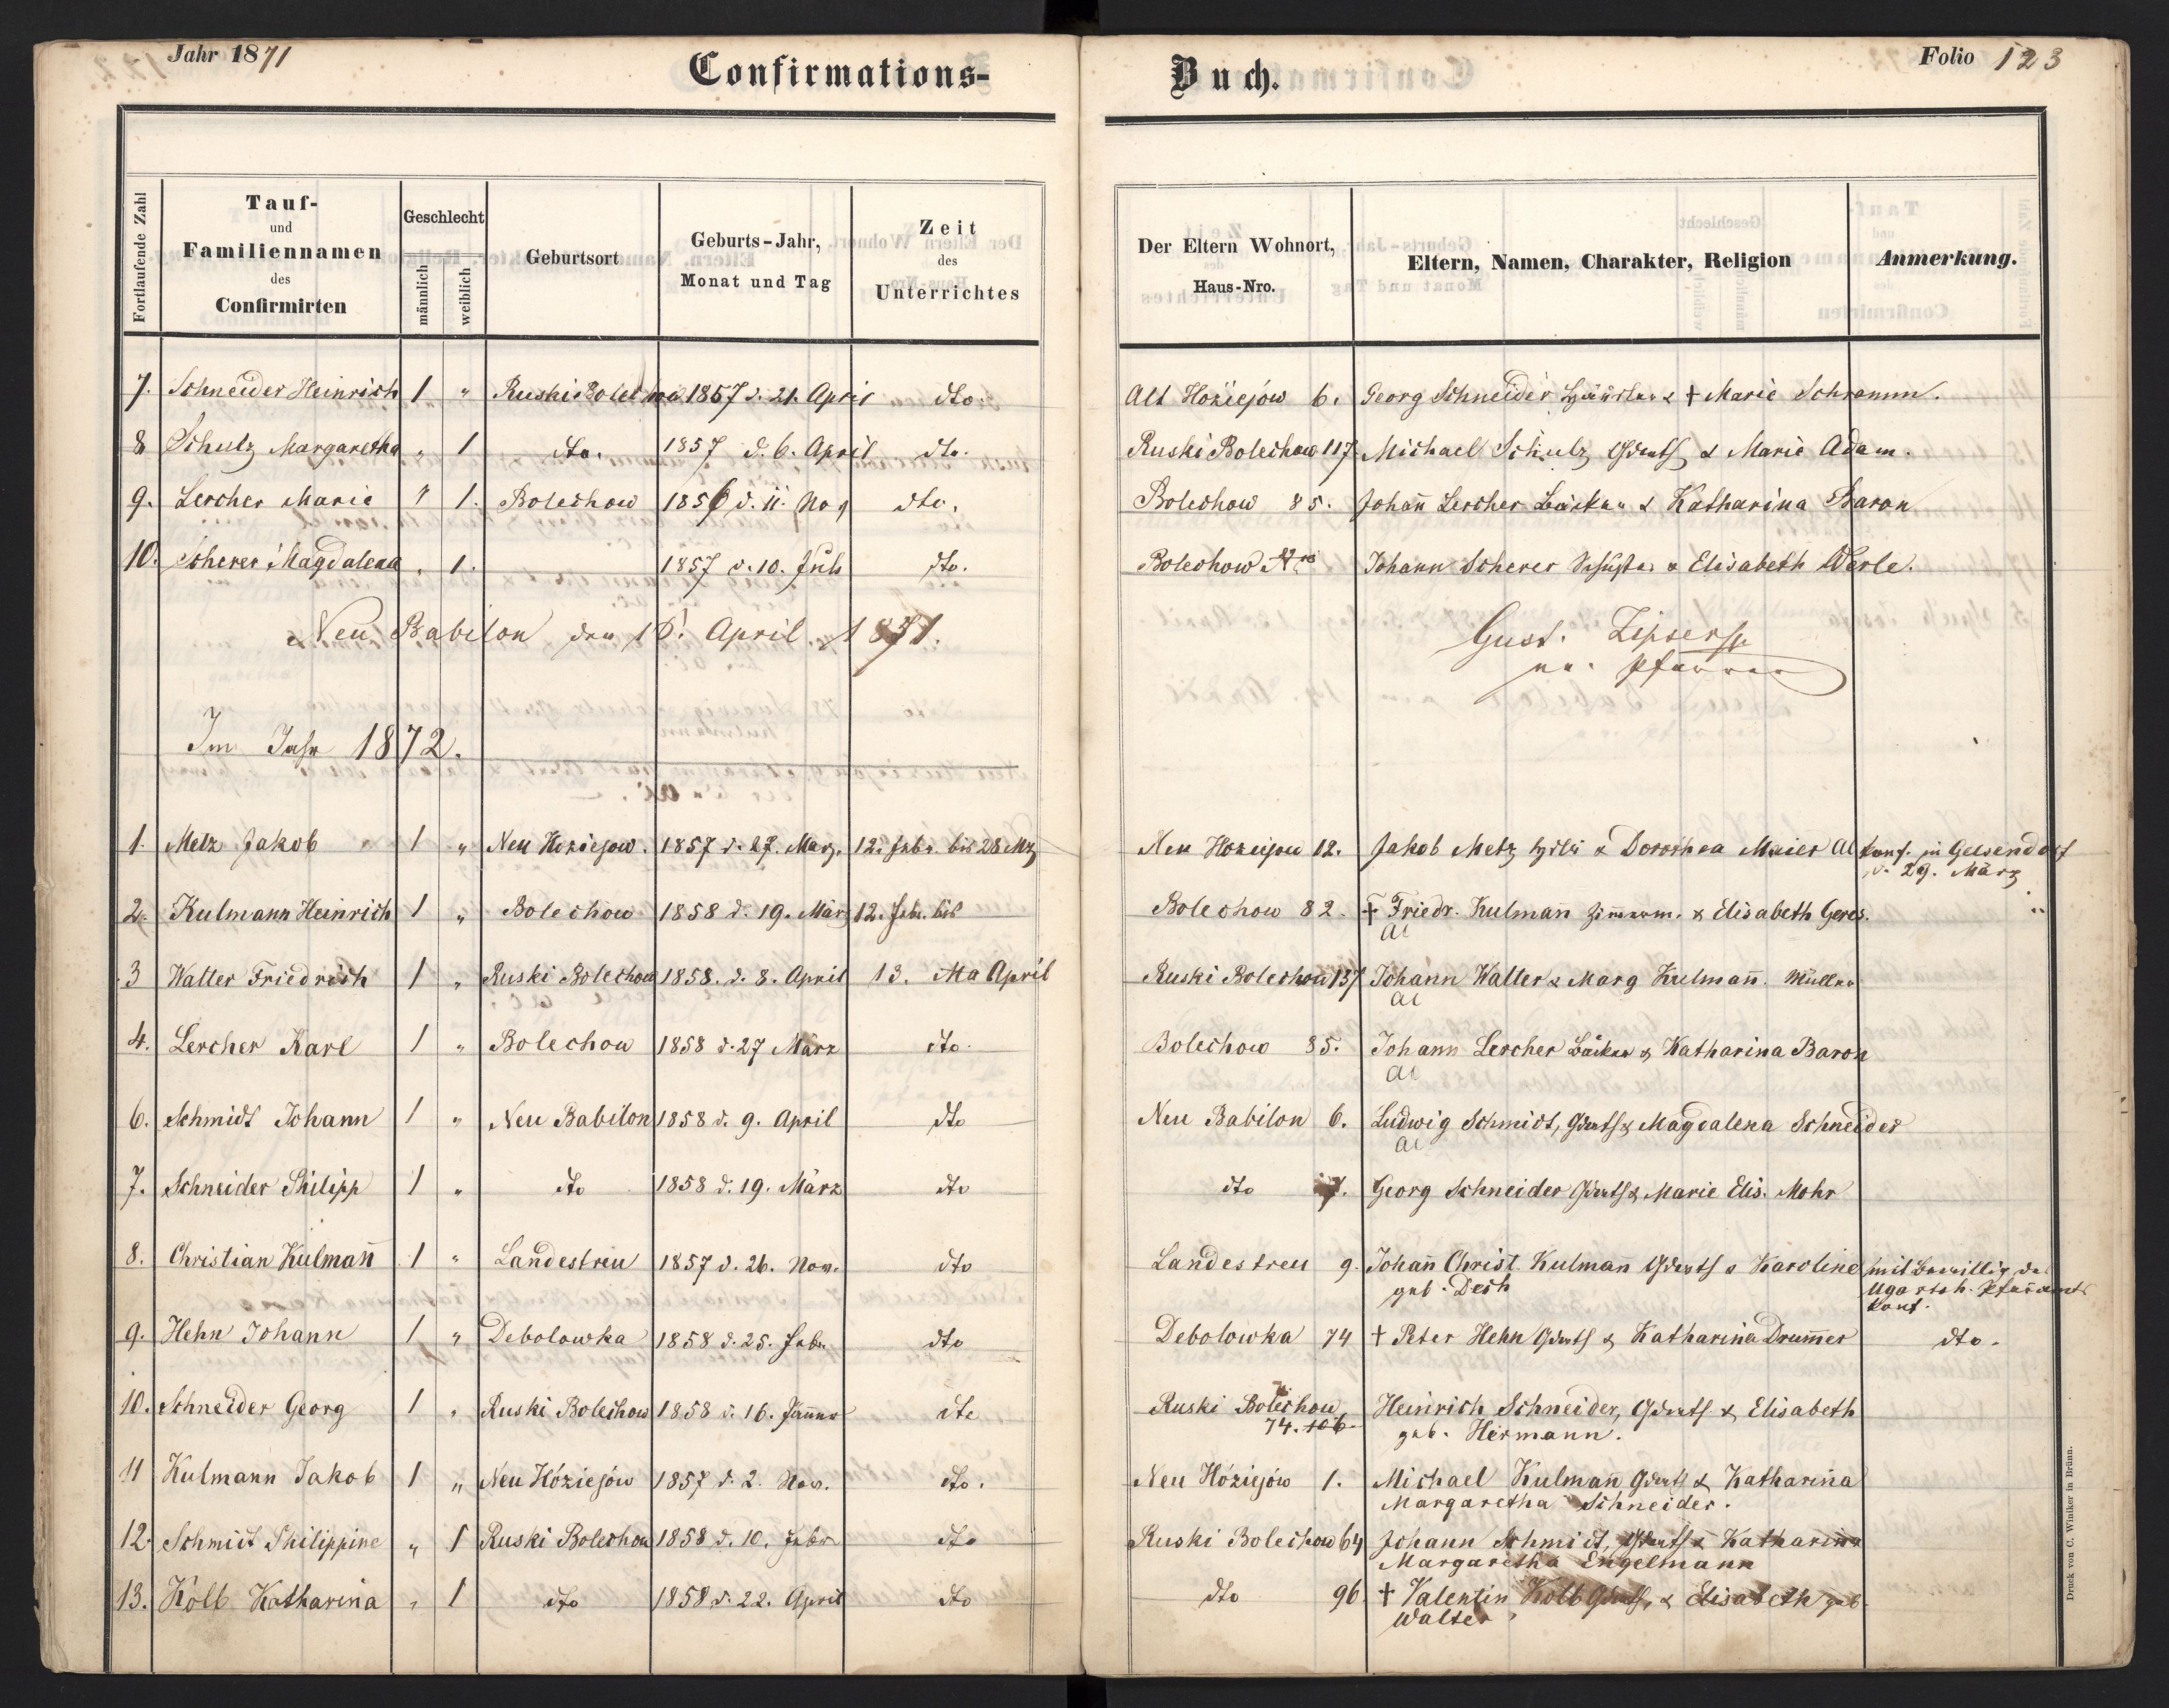 Jahr 1871
Confirmations-
Buch.
Folio 123
Fortlaufende Zahl
Tauf-
und
Familiennamen
des
Confirmirten
Geschlecht
männlich
weiblich
Geburtsort
Geburts-Jahr,
Monat und Tag
Zeit
des
Unterrichtes
Der Eltern Wohnort,
Haus-Nro.
Eltern, Namen, Charakter, Religion
Anmerkung.
7. Schneider Heinrich 1 " Ruski Bolechow 1857 d. 21. April dto. Alt Hoziejów 6. Georg Schneider & † Marie Schramm.
8 Schulz Margaretha " 1 dto. 1857 d. 6. April dto. Ruski Bolechow 117 Michael Schulz Grdwts & Marie Adam.
9. Lercher Marie " 1. Bolechow 1856 d. 11. Nov dto. Bolechow 85. Johañ Lercher Bäcker & Katharina Baron
10. Scherer Magdalena " 1. 1857 d. 10. Juli dto. Bolechow Johann Scherer Schuster & Elisabeth Werle.
Neu Babilon den 16. April 1871. Gust. Zipser
ev. Pfarrer
Im Jahr 1872.
1. Metz Jakob 1 " Neu Hoziejow. 1857 d. 27. März. 12. Febr. bis 28 Mz Neu Hoziejow 12. Jakob Metz & Dorothea Maier AC konf. in Gelsendorf
d. 29. März
2. Kulmann Heinrich 1 " Bolechow 1858 d. 19. März 12. Febr. bis Bolechow 82. † Friedr. Kulmañ Zim̃erm. & Elisabeth Geres.
AC
3 Walter Friedrich 1 " Ruski Bolechow 1858. d. 8. April 13. April Ruski Bolechow 137 Johann Walter & Marg Kulmañ. Müller
AC
4. Lercher Karl 1 " Bolechow 1858 d. 27 März dto. Bolechow 85. Johann Lercher Bäcker & Katharina Baron
AC
6. Schmidt Johann 1 " Neu Babilon 1858 d. 9. April dto Neu Babilon 6. Ludwig Schmidt, Grdwts & Magdalena Schneider
AC
7. Schneider Philipp 1 " dto 1858 d. 19. März dto dto 7. Georg Schneider Grdwts & Marie Elis. Mohr
8. Christian Kulmañ 1 " Landestreu 1857 d. 26. Nov. dto Landestreu 9. Johañ Christ. Kulmañ Grdwts & Karoline mit Bewillig. des
geb. Desh Ugartsh. Pfarramts
konf.
9. Hehn Johann 1 " Debolowka 1858 d. 25. Febr. dto Debolowka 74 † Peter Hehn Grdwts & Katharina Drum̃er dto.
10. Schneider Georg 1 " Ruski Bolechow 1858 d. 16. Jänner dto Ruski Bolechow Heinrich Schneider, Grdwts & Elisabeth
74. 106. geb. Hermann.
11 Kulmann Jakob 1 " Neu Hóziejów 1857 d. 2. Nov. dto. Neu Hóziejów 1. Michael Kulmañ Grdwts & Katharina
Margaretha Schneider.
12. Schmidt Philippine " 1 Ruski Bolechow 1858 d. 10. Febr dto Ruski Bolechow 64 Johann Schmidt, Grdwts & Katharina
Margaretha Engelmann
13. Kolb Katharina " 1 dto 1858 d. 22. April dto dto 96 † Valentin Kolb Grdwts, & Elisabeth geb
Walter
Druck von C. Winiker in Brünn.